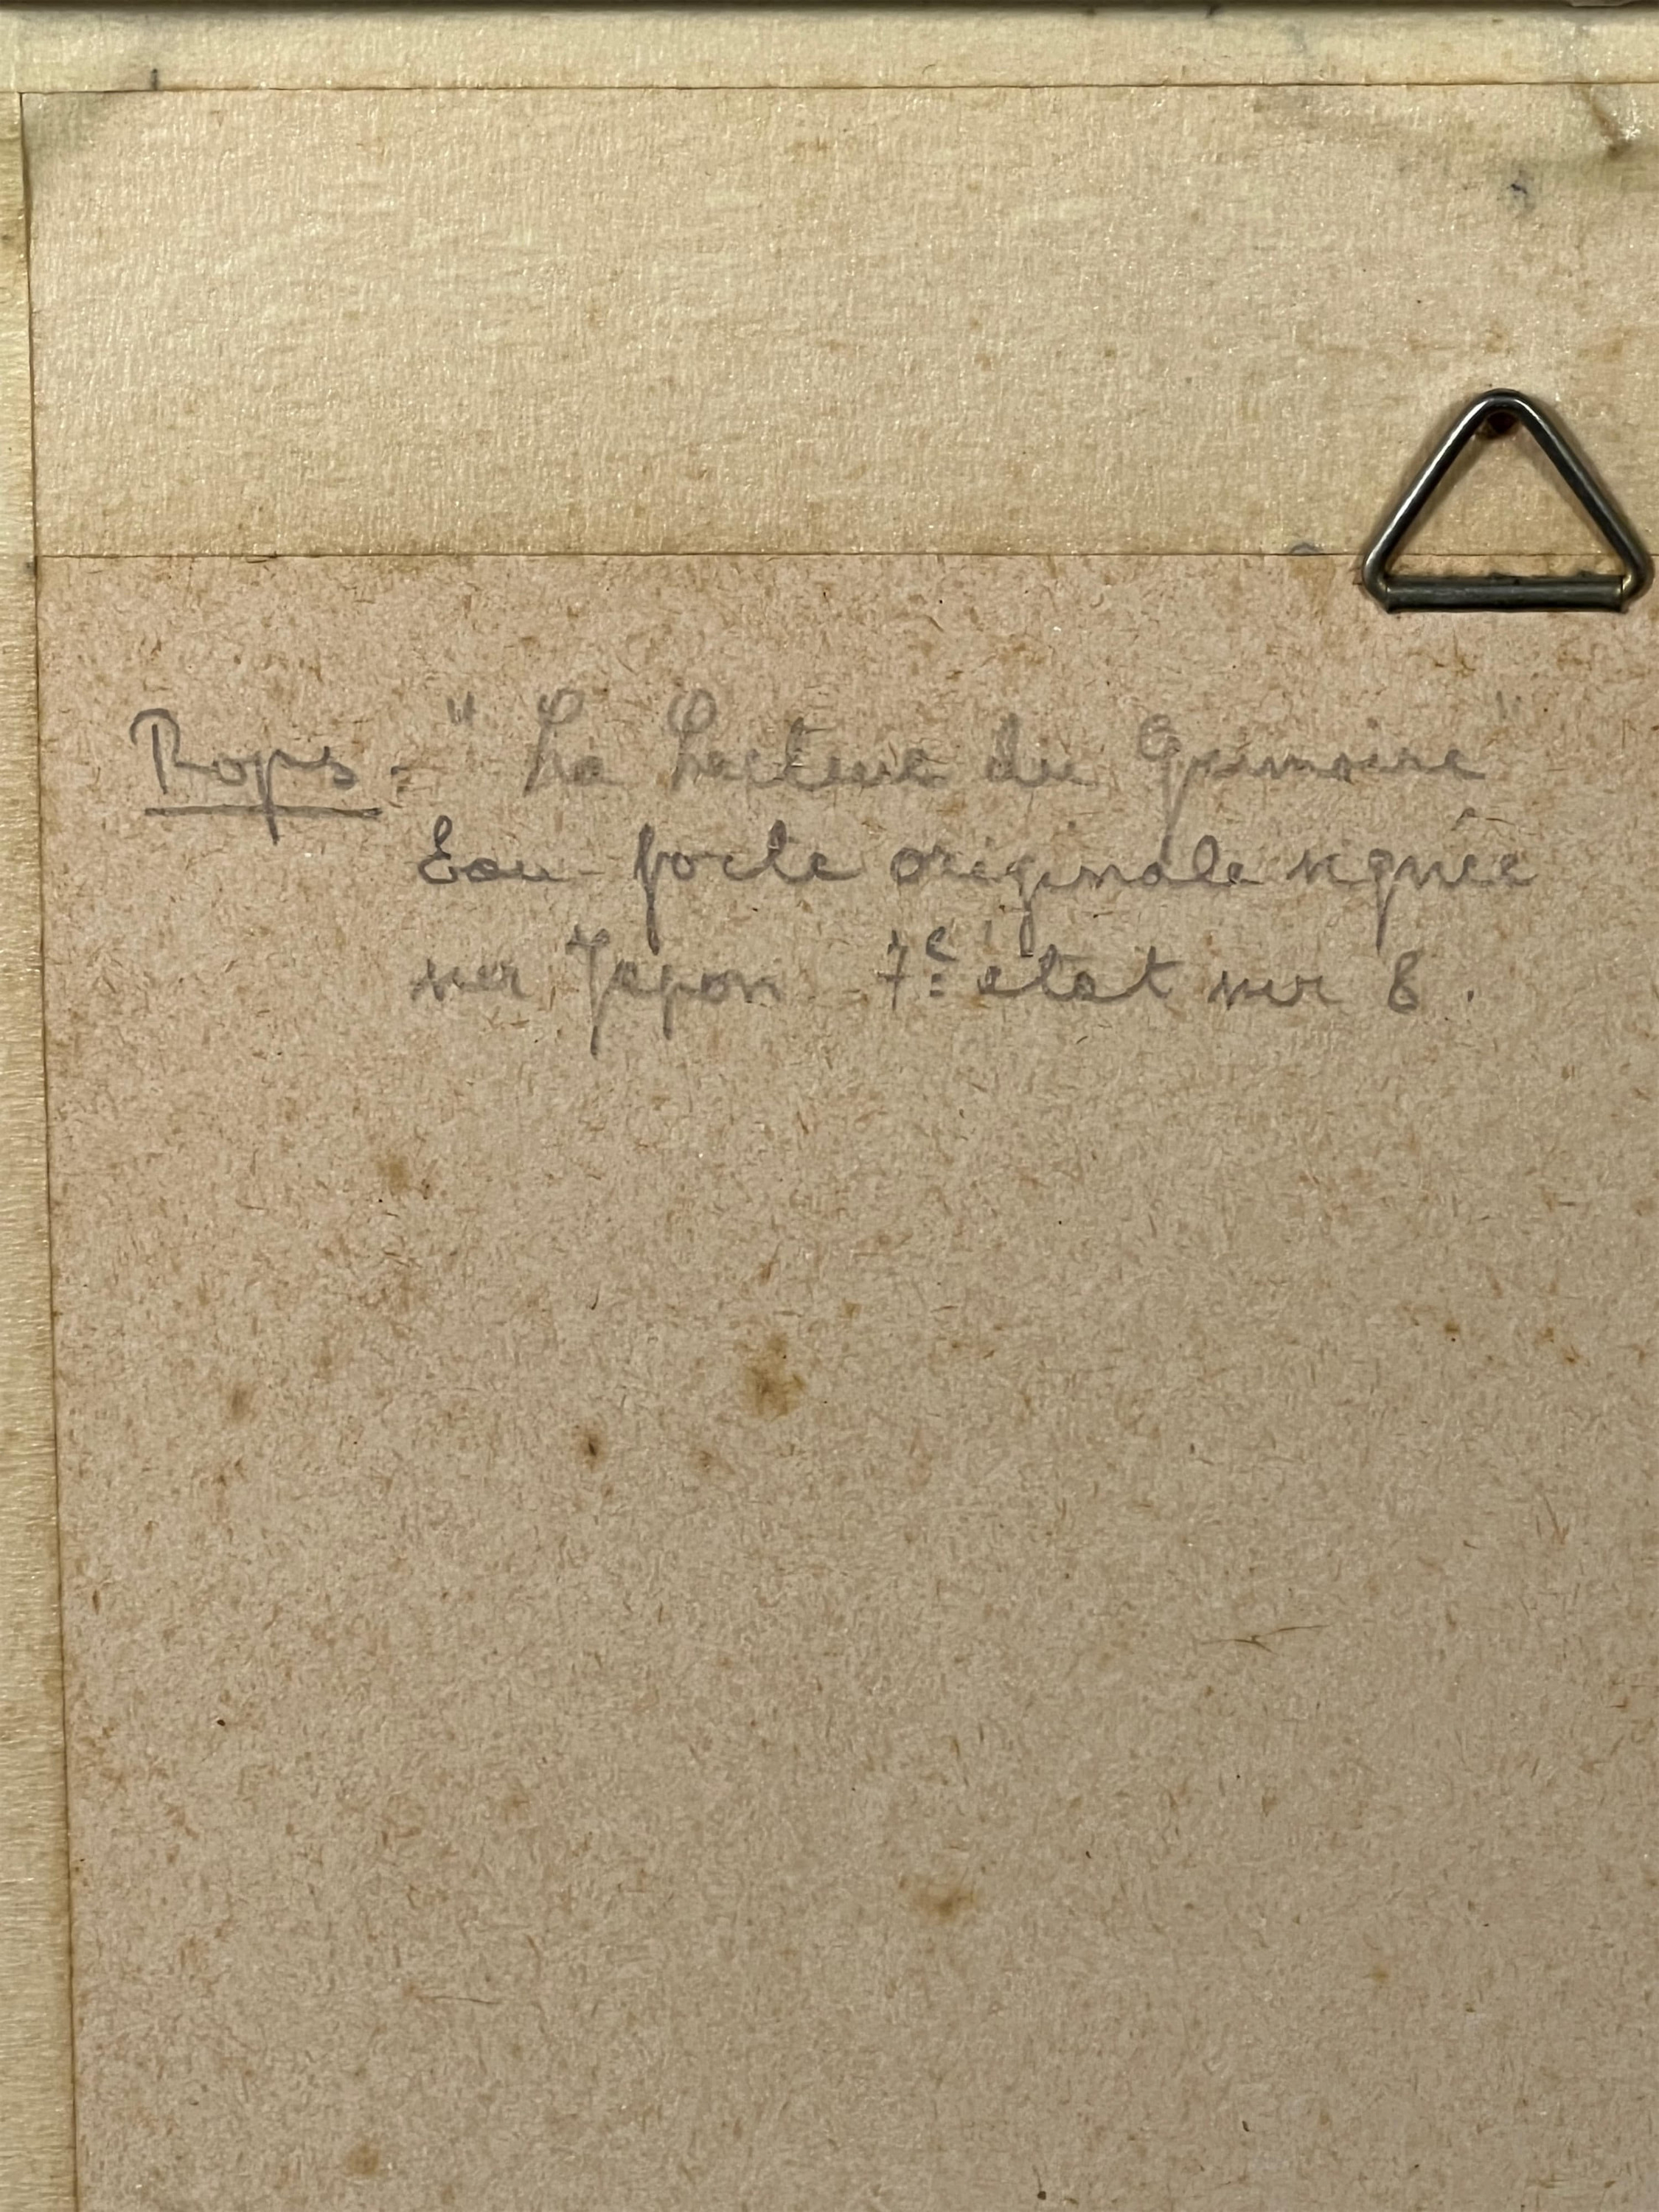 Rops - "La Lecture du Grimoire"
Eau-forte originale signée
sur Japon 7e état sur 8.